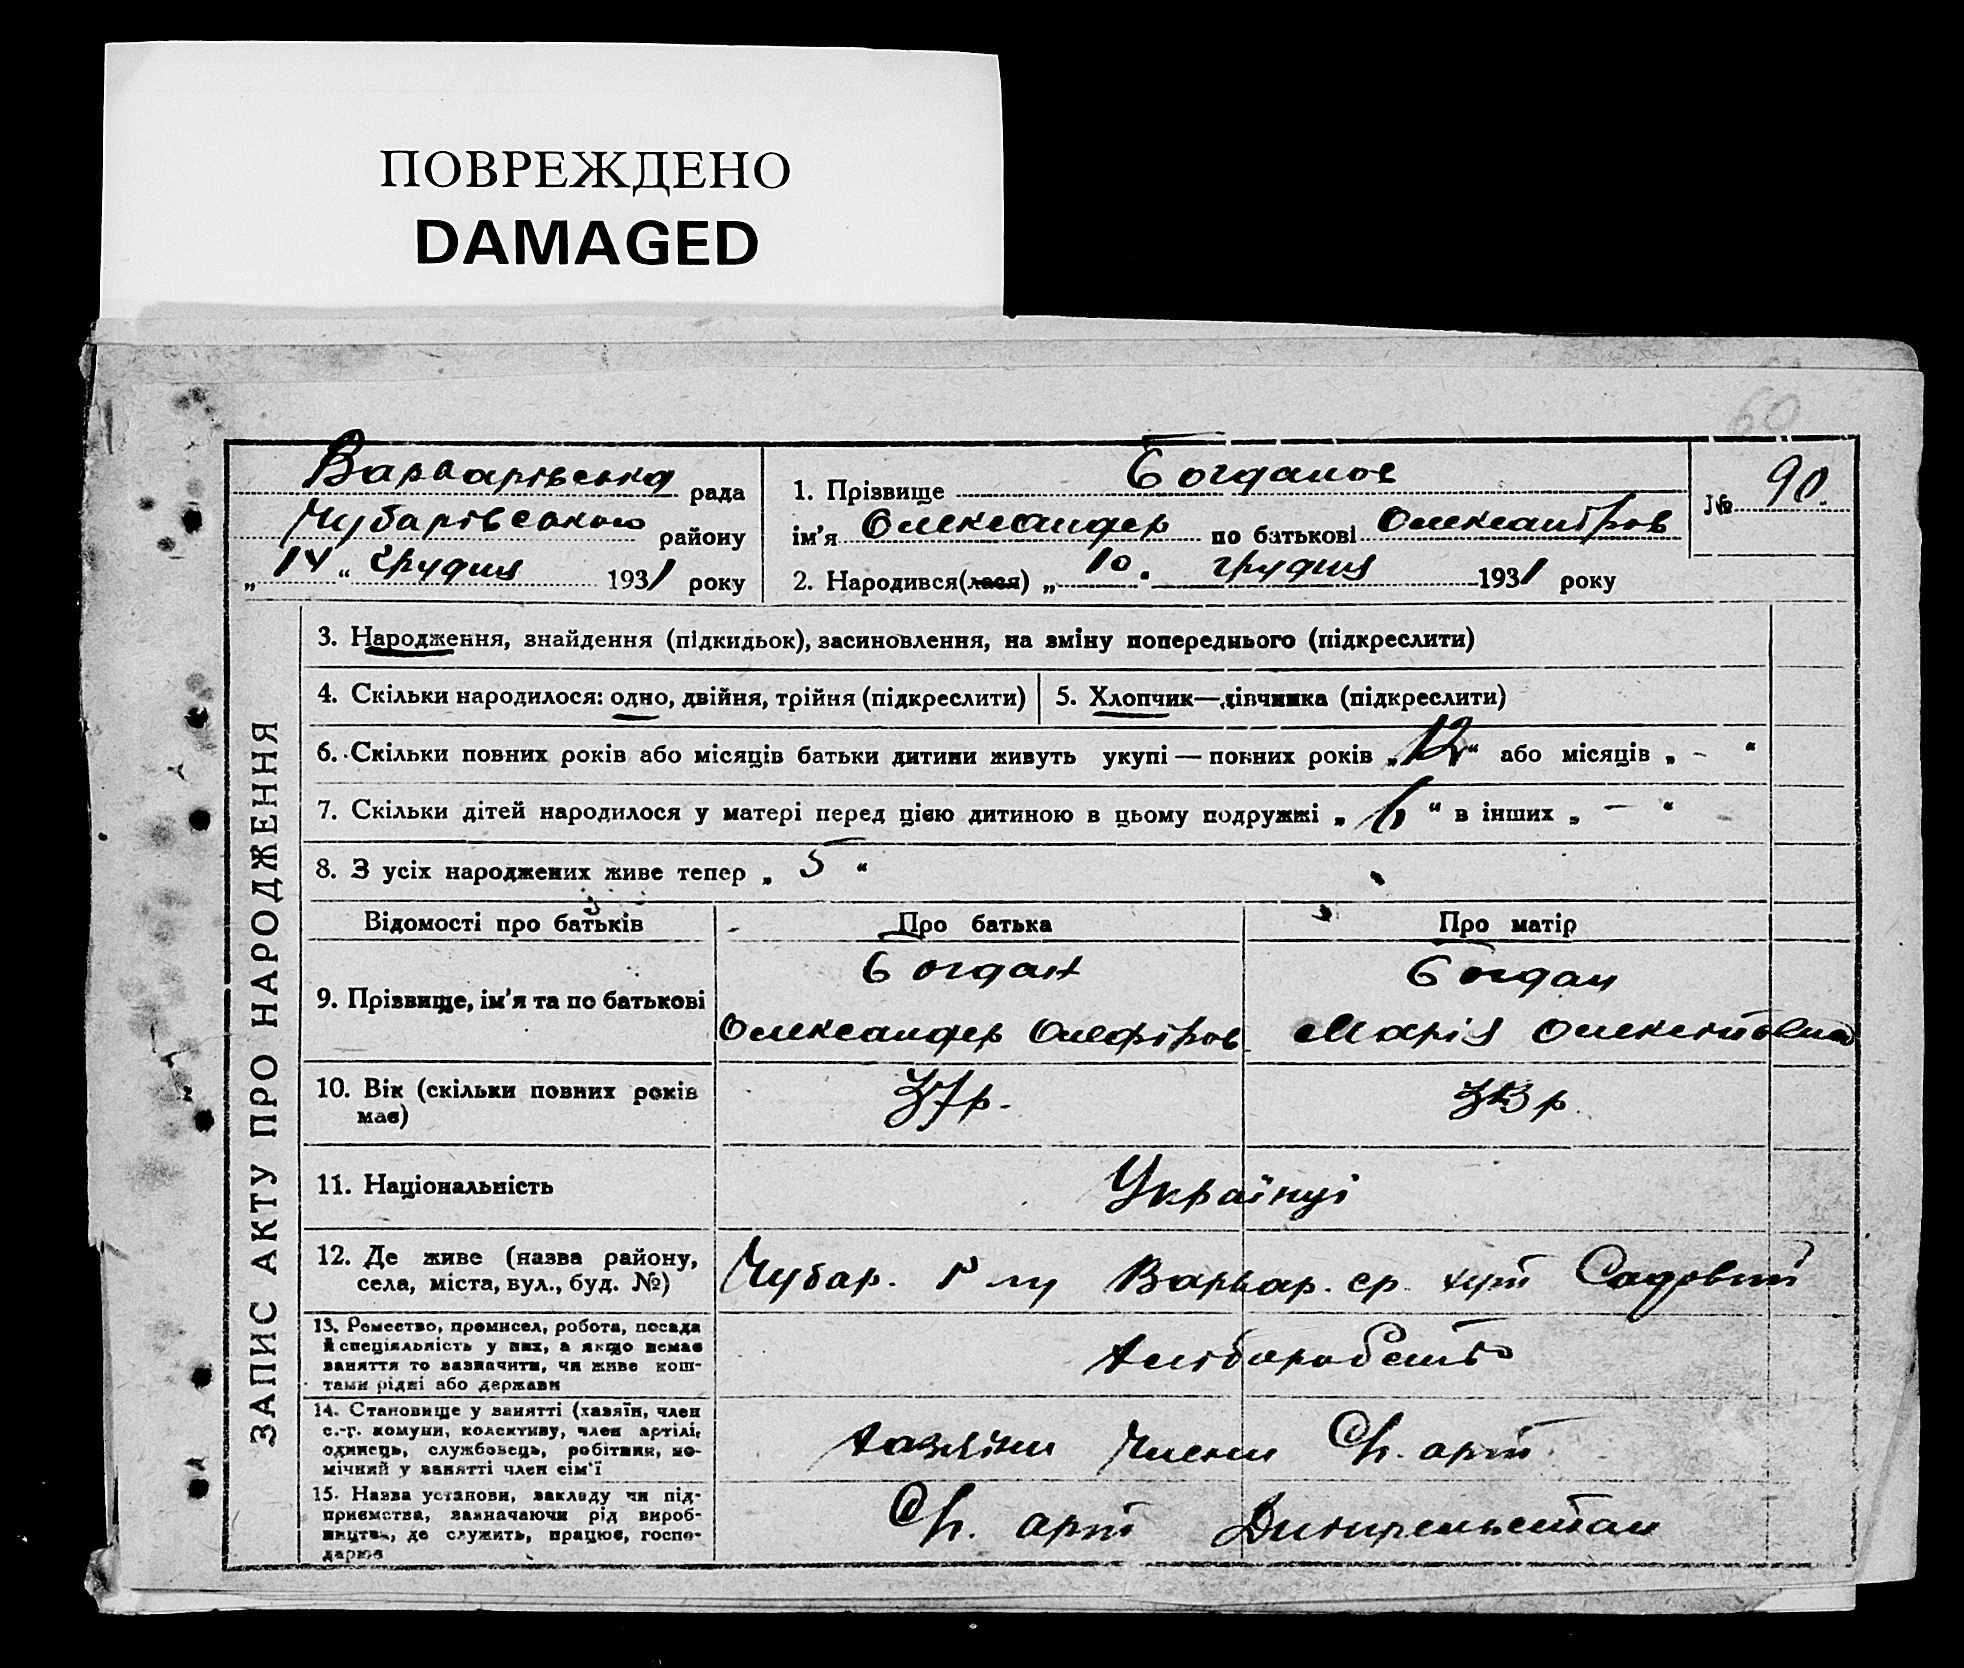 ПОВРЕЖДЕНО
DAMAGED
60
Варварівська рада
Чубарівського району
„14“ грудня 1931 року
1. Прізвище Богданов
ім'я Олександер по батькові Олександров
№ 90.
2. Народився(лася) „10. грудня 1931 року
ЗАПИС АКТУ ПРО НАРОДЖЕННЯ
3. Народження, знайдення (підкидьок), засиновлення, на зміну попереднього (підкреслити)
4. Скільки народилося: одно, двійня, трійня (підкреслити)
5. Хлопчик—дівчинка (підкреслити)
6. Скільки повних років або місяців батьки дитини живуть укупі — повних років „12“ або місяців „ – “
7. Скільки дітей народилося у матері перед цією дитиною в цьому подружжі „6“ в інших „ — “
8. З усіх народжених живе тепер „5“
Відомості про батьків
Про батька
Про матір
9. Прізвище, ім'я та по батькові
Богдан
Олександер Олефіров
Богдан
Марія Олексіївна
10. Вік (скільки повних років
має)
37 р.
33 р.
11. Національність
Українці
12. Де живе (назва району,
села, міста, вул., буд. №)
Чубар. р-ну Варвар. ср. хут Садовий
13. Ремество, промисел, робота, посада
й спеціяльність у них, а якщо немає
заняття то зазначити, чи живе кош-
тами рідні або держави
Хліборобство
14. Становище у занятті (хазяїн, член
с.-г. комуни, колективу, член артілі,
одинець, службовець, робітник, по-
мічний у занятті член сім'ї
Хазяїни члени Сг. арт
15. Назва установи, закладу чи під-
приємства, зазначаючи рід вироб-
ництва, де служить, працює, госпо-
дарює
Сг. арт